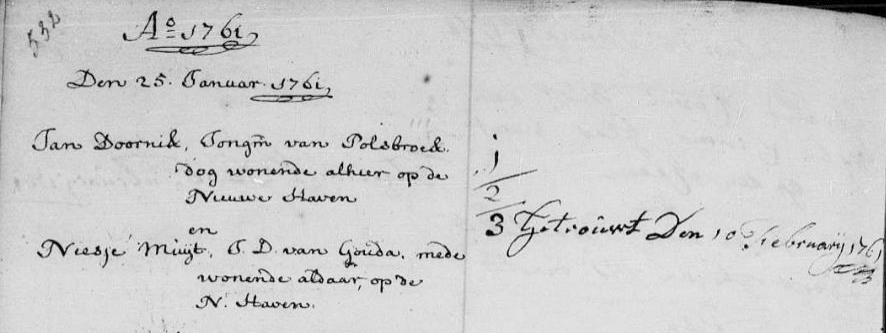 532
Ao 1761,
Den 25. Januar. 1761,
Jan Doornik, Jongm van Polsbroek.
dog wonende alhier op de
Nieuwe Haven
en
Niesje Muijt, J. D. van Gouda, mede
wonende aldaar, op de
N. Haven.
1
2
3 Getrouwt Den 10 February 1761